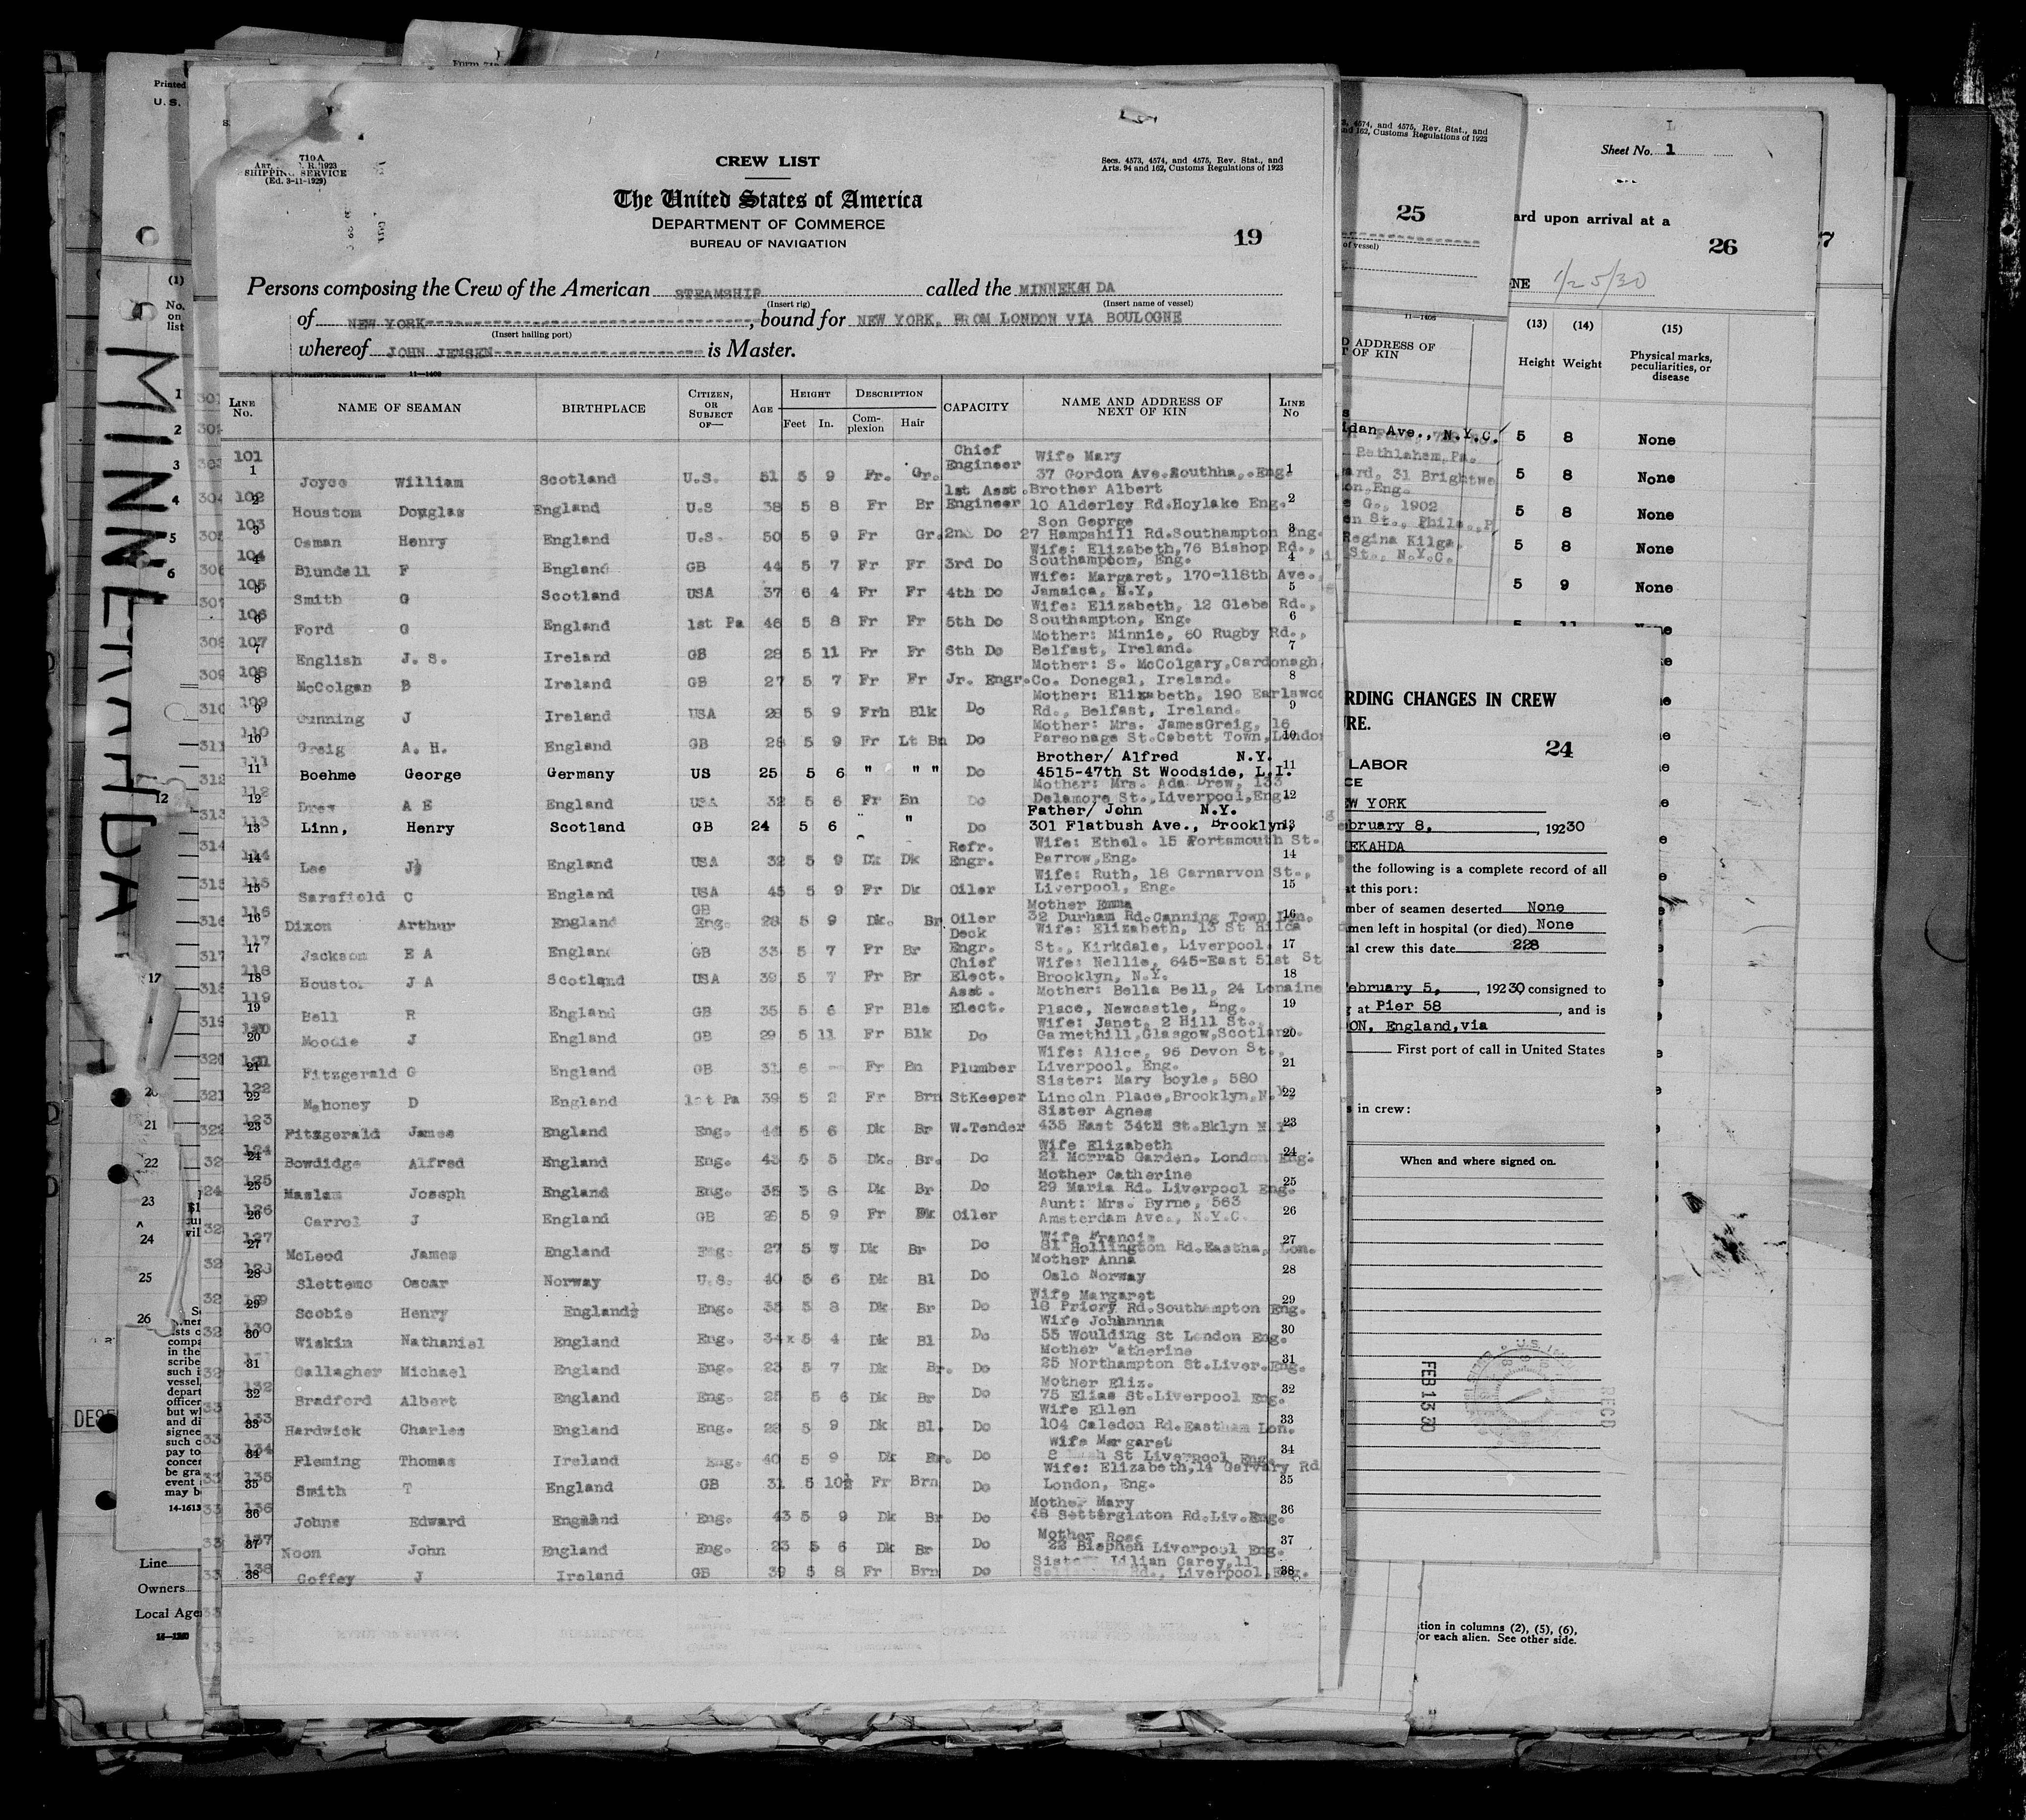 CREW LIST
710A
SHIPPING SERVICE
(Ed. 3-11-1929)
Secs. 4573, 4574, and 4575, Rev. Stat., and
Arts. 94 and 162, Customs Regulations of 1923
The United States of America
DEPARTMENT OF COMMERCE
BUREAU OF NAVIGATION
19
Persons composing the Crew of the American STEAMSHIP called the MINNEKAHDA
(Insert rig) (Insert name of vessel)
of NEW YORK, bound for NEW YORK, FROM LONDON VIA BOULOGNE
(Insert hailing port)
whereof JOHN JENSEN is Master.
11—1408
LINE No. NAME OF SEAMAN BIRTHPLACE CITIZEN, OR SUBJECT OF— AGE HEIGHT Feet In. DESCRIPTION Complexion Hair CAPACITY NAME AND ADDRESS OF NEXT OF KIN LINE No
101 1 Joyce William Scotland U.S. 51 5 9 Fr. Gr. Chief Engineer Wife Mary 37 Gordon Ave.Southha,.Eng. 1
102 2 Houstom Douglas England U.S 38 5 8 Fr Br 1st Asst. Engineer Brother Albert 10 Alderley Rd.Hoylake Eng. 2
103 3 Osman Henry England U.S. 50 5 9 Fr Gr. 2nd Do Son George 27 Hampshill Rd.Southampton Eng. 3
104 4 Blundell F England GB 44 5 7 Fr Fr 3rd Do Wife: Elizabeth,76 Bishop Rd., Southampoom, Eng. 4
105 5 Smith G Scotland USA 37 6 4 Fr Fr 4th Do Wife: Margaret, 170-118th Ave., Jamaica, N.Y, 5
106 6 Ford G England 1st Pa 46 5 8 Fr Fr 5th Do Wife: Elizabeth, 12 Glebe Rd., Southampton, Eng. 6
107 7 English J. S. Ireland GB 28 5 11 Fr Fr 5th Do Mother: Minnie, 60 Rugby Rd., Belfast, Ireland. 7
108 8 McColgan B Ireland GB 27 5 7 Fr Fr Jr. Engr. Mother: S. McColgary,Cardonagh, Co. Donegal, Ireland. 8
109 9 Gunning J Ireland USA 28 5 9 Frh Blk Do Mother: Elizabeth, 190 Earlswoo Rd., Belfast, Ireland. 9
110 10 Greig A. H. England GB 28 5 9 Fr Lt Bn Do Mother: Mrs. JamesGreig, 16 Parsonage St.Cobett Town,London 10
111 11 Boehme George Germany US 25 5 6 " " " Do Brother/ Alfred N.Y. 4515-47th St Woodside, L.I. 11
112 12 Drew A E England USA 32 5 6 Fr Bn Do Mother: Mrs. Ada Drew, 133 Delamore St.,Liverpool,Eng 12
113 13 Linn, Henry Scotland GB 24 5 6 " " Do Father/ John N.Y. 301 Flatbush Ave., Brooklyn, 13
114 14 Lee J England USA 32 5 9 Dk Dk Refr. Engr. Wife: Ethel. 15 Portsmouth St. Parrow,Eng. 14
115 15 Sarsfield C England USA 45 5 9 Fr Dk Oiler Wife: Ruth, 18 Carnarvon St., Liverpool, Eng. 15
116 16 Dixon Arthur England GB Eng. 28 5 9 Dk. Br Oiler Mother Emma 32 Durham Rd.Canning Town Lon. 16
117 17 Jackson E A England GB 33 5 7 Fr Br Deck Engr. Wife: Elizabeth, 13 St Hilda St., Kirkdale, Liverpool 17
118 18 Houston J A Scotland USA 39 5 7 Fr Br Chief Elect. Wife: Nellie, 645-East 51st St Brooklyn, N.Y. 18
119 19 Bell R England GB 35 5 6 Fr Ble Asst. Elect. Mother: Bella Bell, 24 Lonaine Place, Newcastle, Eng. 19
120 20 Moodie J England GB 29 5 11 Fr Blk Do Wife: Janet, 2 Hill St., Garnethill,Glasgow,Scotland. 20
121 21 Fitzgerald G England GB 31 6 Fr Bn Plumber Wife: Alice, 96 Devon St., Liverpool, Eng. 21
122 22 Mahoney D England 1st Pa 39 5 2 Fr Brn StKeeper Sister: Mary Boyle, 580 Lincoln Place,Brooklyn,N.Y. 22
123 23 Fitzgerald James England Eng. 44 5 6 Dk Br W.Tender Sister Agnes 435 East 34th St.Bklyn N.Y 23
124 24 Bowdidge Alfred England Eng. 43 5 5 Dk. Br. Do Wife Elizabeth 21 Morrab Garden. London Eng. 24
125 25 Maslam Joseph England Eng. 35 5 8 Dk Br Do Mother Catherine 29 Maria Rd. Liverpool Eng. 25
126 26 Carrol J England GB 5 9 Fr Dk Oiler Aunt: Mrs. Byrne, 563 Amsterdam Ave., N.Y.C. 26
127 27 McLeod James England Eng. 27 5 7 Dk Br Do Wife Francis 81 Hollington Rd.Eastha, Lon. 27
128 28 Slettemo Oscar Norway U.S. 40 5 6 Dk Bl Do Mother Anna Oslo Norway 28
129 29 Scobie Henry England Eng. 35 5 8 Dk Br Do Wife Margaret 18 Priory Rd.Southampton Eng. 29
130 30 Wiskin Nathaniel England Eng. 34x 5 4 Dk Bl Do Wife Johannna 55 Woulding St London Eng. 30
131 31 Gallagher Michael England Eng. 23 5 7 Dk Br. Do Mother Catherine 25 Northampton St.Liver.Eng. 31
132 32 Bradford Albert England Eng. 25 5 6 Dk Br Do Mother Eliz. 75 Elias St.Liverpool Eng. 32
133 33 Hardwick Charles England Eng. 28 5 9 Dk Bl. Do Wife Ellen 104 Caledon Rd.Eastham Lon. 33
134 34 Fleming Thomas Ireland Eng. 40 5 9 Dk Br. Do Wife Margaret St Liverpool Eng. 34
135 35 Smith T England GB 31 5 10½ Fr Brn Do Wife: Elizabeth,14 Gervary Rd London, Eng. 35
136 36 Johns Edward England Eng. 43 5 9 Dk Br Do Mother Mary 48 Setterginton Rd.Liv.Eng. 36
137 37 Noon John England Eng. 23 5 6 Dk Br Do Mother Rose 22 Bisphen Liverpool Eng. 37
138 38 Coffey J Ireland GB 39 5 8 Fr Brn Do Sister Lilian Carey,11 Rd., Liverpool,Eng. 38
MINNEKAHDA
Printed
U. S.
(1)
No.
on
list
Line
Owners
Local Age
14-1613
4574, and 4575, Rev. Stat., and
162, Customs Regulations of 1923
25
of vessel)
11—1408
D ADDRESS OF
T OF KIN
idan Ave., N.Y.C.
Bethlahem,Pa.
ard, 31 Brightwe
on,Eng.
e G., 1902
en St., Phila.,P
Regina Kilga,
St., N.Y.C.
Sheet No. 1
ard upon arrival at a
26
NE 1/25/30
(13) (14) (15)
Height Weight Physical marks, peculiarities, or disease
5 8 None
5 8 None
5 8 None
5 8 None
5 9 None
RDING CHANGES IN CREW
RE.
24
LABOR
CE
EW YORK
bruary 8, , 19230
EKAHDA
the following is a complete record of all
at this port:
mber of seamen deserted None
men left in hospital (or died) None
al crew this date 228
ebruary 5, , 19230, consigned to
g at Pier 58 , and is
ON, England,via
First port of call in United States
s in crew:
When and where signed on.
FEB 13 30
REC'D
tion in columns (2), (5), (6),
for each alien. See other side.